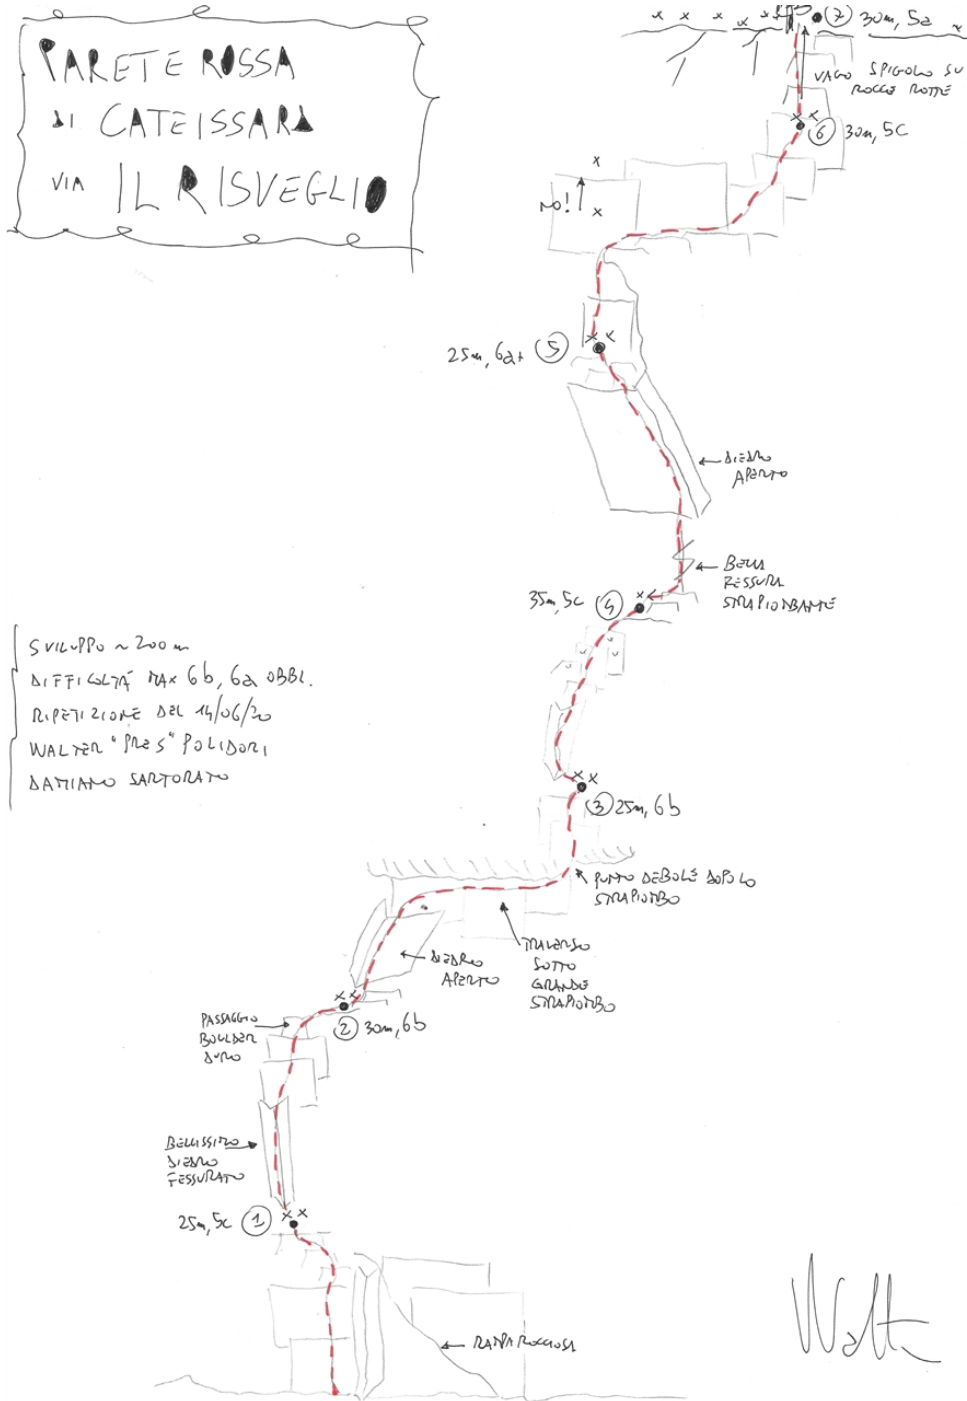 PARETE ROSSA
DI CATEISSARD
VIA IL RISVEGLIO
7 30m, 5a
VAGO SPIGOLO SU
ROCCE ROTTE
6 30m, 5c
NO!
25m, 6a+ 5
DIEDRO
APERTO
BELLA
FESSURA
STRAPIOMBANTE
35m, 5c 4
SVILUPPO ~ 200m
DIFFICOLTÀ MAX 6b, 6a OBBL.
RIPETIZIONE DEL 14/06/20
WALTER "PRES" POLIDORI
DAMIANO SARTORATO
3 25m, 6b
PUNTO DEBOLE DOPO LO
STRAPIOMBO
DIEDRO
APERTO
TRAVERSO
SOTTO
GRANDE
STRAPIOMBO
PASSAGGIO
BOULDER
DURO
2 30m, 6b
BELLISSIMO
DIEDRO
FESSURATO
25m, 5c 1
RAMPA ROCCIOSA
Walter